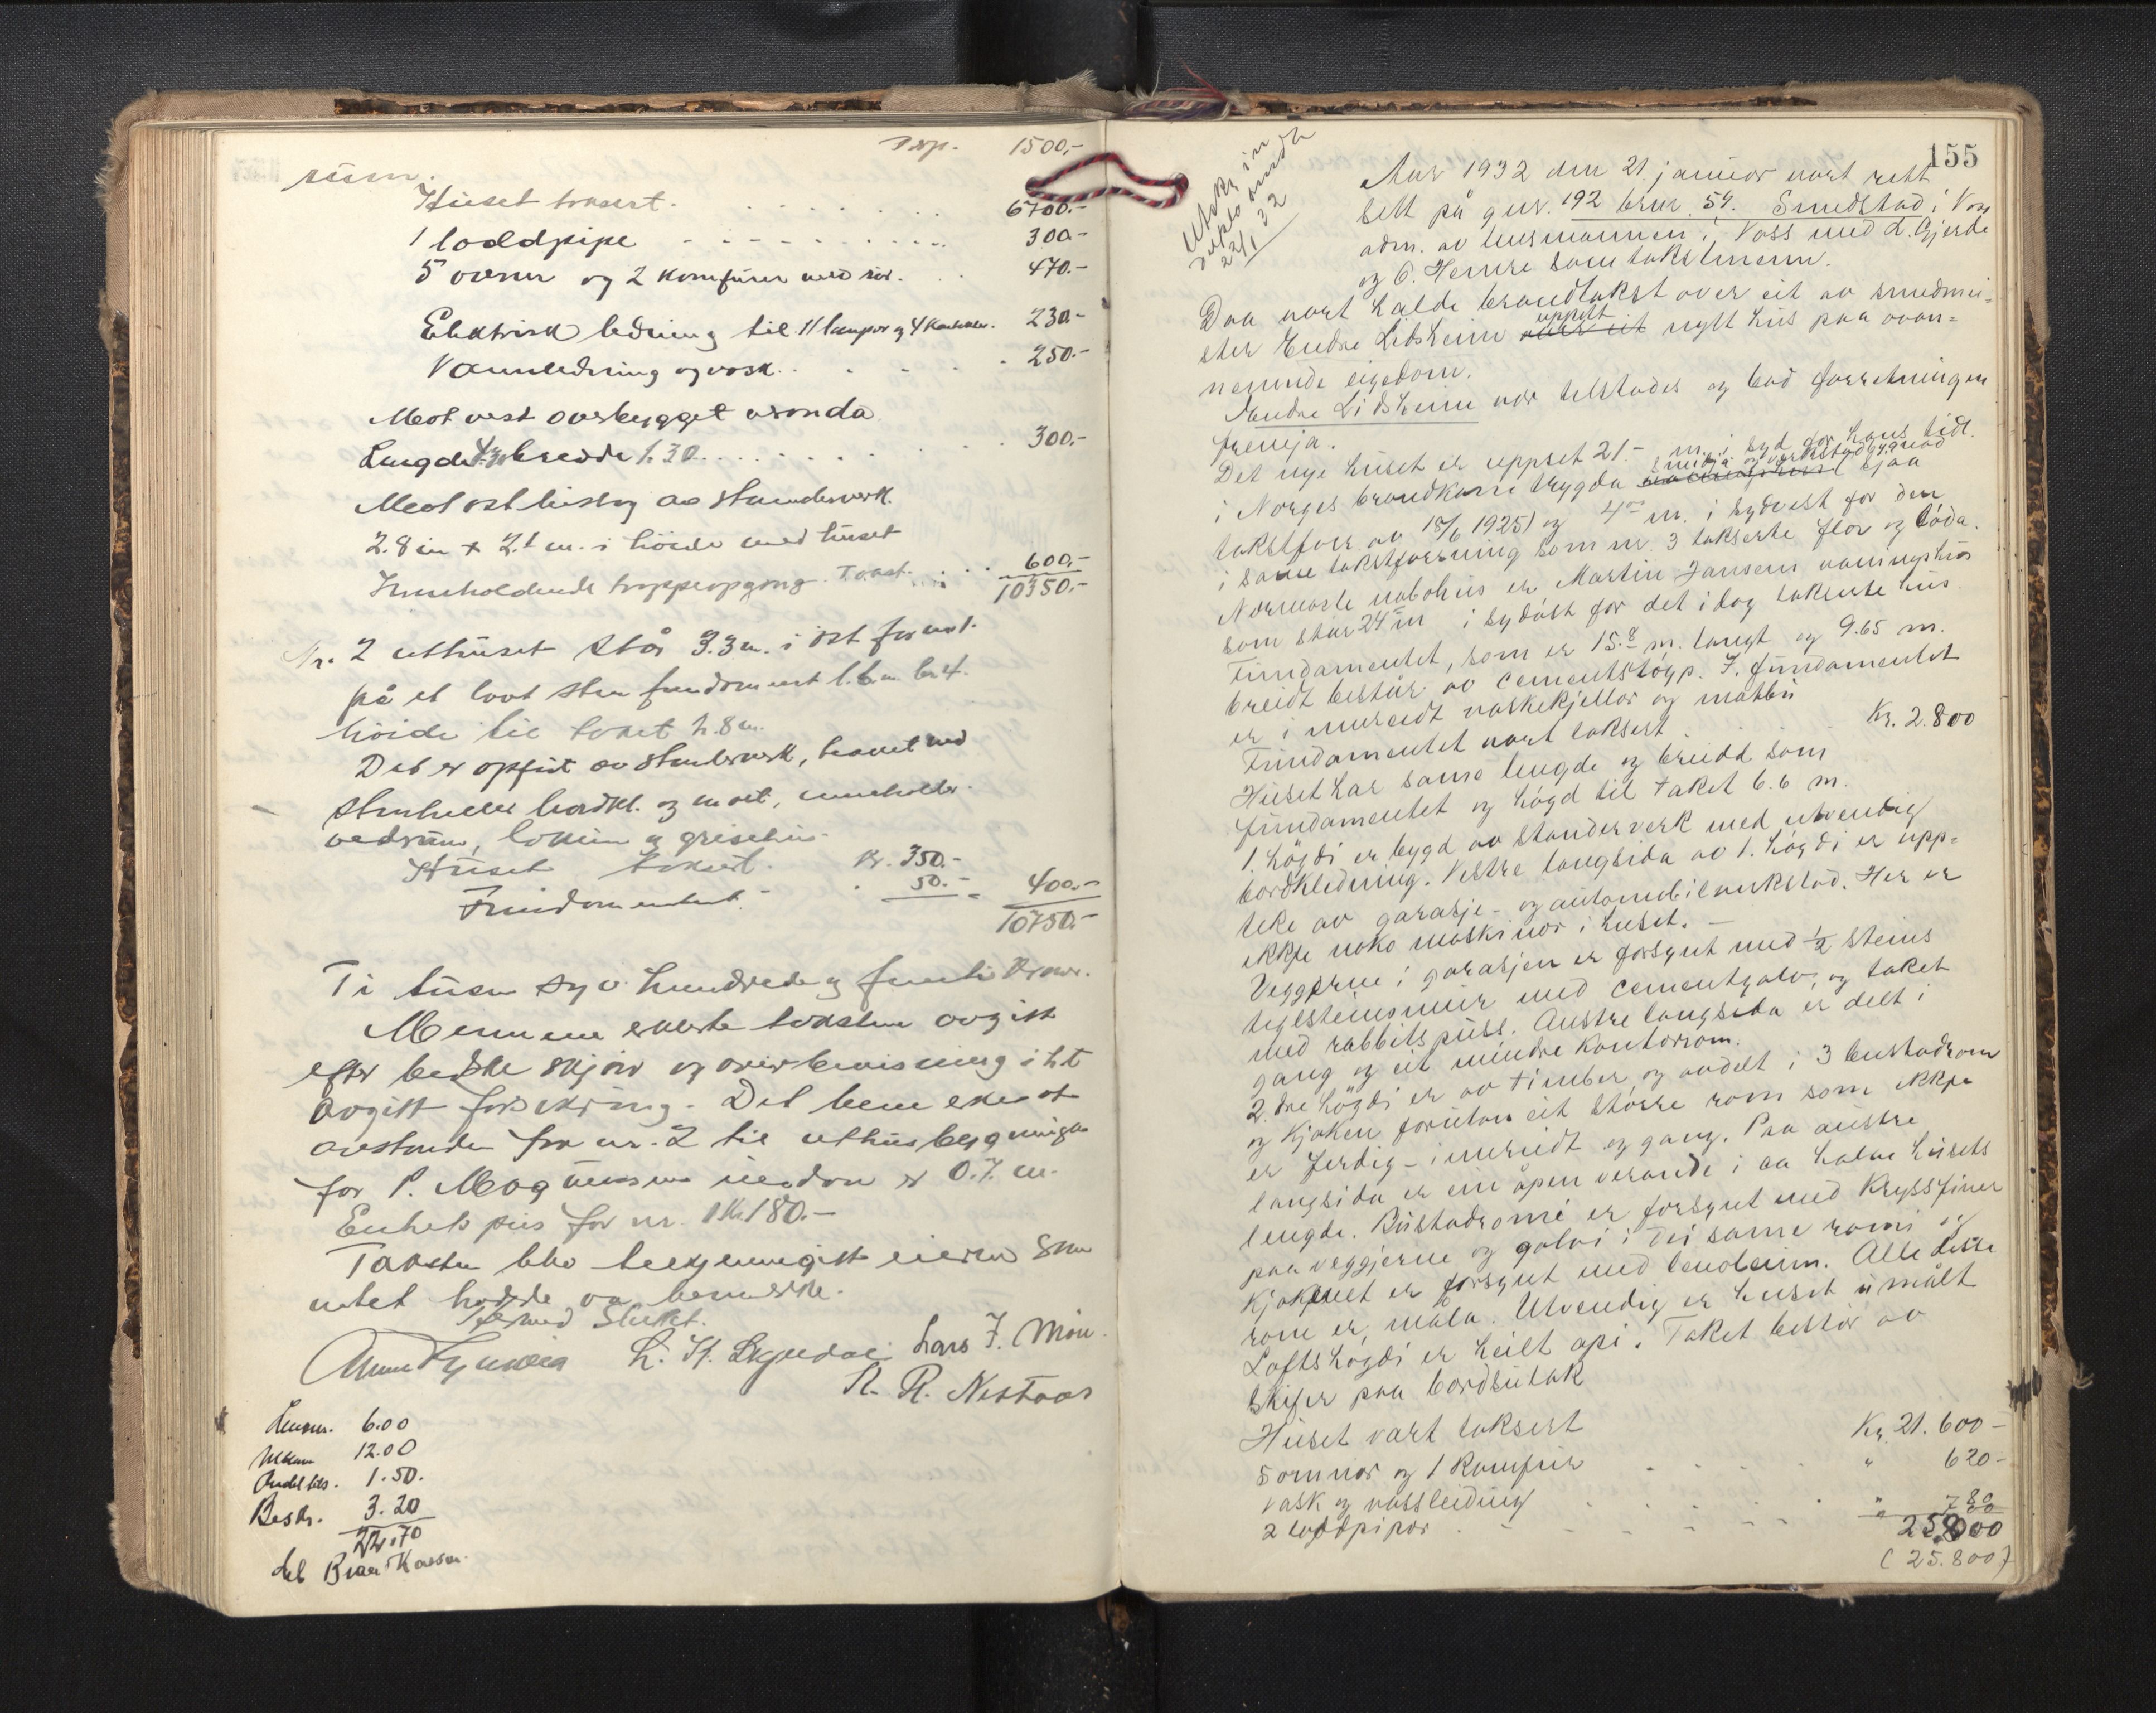 Trsp. 1500,-
rum.
Huset taksert. 6700.-
1 loddpipe 300.-
5 ovner og 2 komfurer med rør. 470.-
Elektrisk ledning til 11 lamper og 4 kontakter. 230.-
Vannledning og vask. 250.-
Mot vest overbygget veranda
Lengde bredde 1.30 300.-
Mot ost tilbyg av stenderverk.
2.8 m x 2.1 m. i höide med huset
Inneholdende trappeopgang. Takst. 600,-
10350.-
Nr. 2 uthuset står 3.3 m. i öst for nr 1.
på et lavt sten fundament l. 6 m. br 4.
höide til taket 2.8 m.
Det er opført av stenderverk, tekket med
stenheller bordkl. og malt, inneholder
vedrum, lokum og grisehus.
Huset taksert. Kr. 350.-
Fundamentet. 50.- = 400.-
10750.-
Ti tusen syv hundrede og femti kroner.
Mennene erklærte taksten avgitt
efter beste skjön og overbevisning i h.t.
avgitt forsikring. Det bemerkes at
avstanden fra nr. 2 til uthusbygningen
for P. Magnussens eiendom er 0.7 m.
Enhetspris for nr. 1 Kr. 180.-
Taksten blev bekjentgjort eieren som
intet hadde å bemerke.
Dermed Sluttet.
Lars J. Møn.
R. R. Nestaas
Lensm. 6.00
12.00
1.50.
Beskr. 3.20
22.70
bet Brandkassen.
155
22/1 32
Aar 1932 den 21. januar vart rett
sett på gnr. 192 brnr. 54. Smedstad i Voss
adm. av lensmannen i Voss med L. Gjerde
og O. Hemre som takstmenn.
Daa vart halde brandtakst over eit av smedmei-
ster Endre Lidsheim uppsett nytt hus paa ovan-
nemnde eigedom.
Endre Lidsheim var tilstades og bad forretningen
fremja.
Det nye huset er uppset 21.- m. i syd for hans tidl.
i Norges brandkasse trygda smidja og verkstadbygnad (sjaa
takstforr. av 18/6 1925) og 4 m. i sydvest for den
i same takstforretning som nr. 3 takserte flor og löda.
Nærmaste nabohus er Martin Jansens vaaningshus
som står 24 m i sydöst for det idag takserte hus.
Fundamentet, som er 15.8 m. langt og 9.65 m.
breidt består av cementstöyp. I fundamentet
er innreidt vaskekjellar og matbu
Fundamentet vart taksert Kr. 2.800
Huset har same lengde og breidd som
fundamentet og högd til taket 6.6 m.
1. högdi er bygd av standerverk med utvendig
bordkledning. Vestre langsida av 1. högdi er upp-
teke av garasje- og automobilverkstad. Her er
ikkje noko maskinor i huset. -
Veggjerne i garasjen er forsynt med 1/2 steins
teglsteinsmur med cementgolv, og taket
med rabbitspuss. Austre langsida er delt i
gang og eit mindre kontorrom.
2dre högdi er av timber og avdelt i 3 bustadrom
og kjöken, forutan eit större rom som ikkje
er ferdig-innreidt og gang. Paa austre
langsida er ein åpen verande i ca halve husets
lengde. Bustadromi er forsynt med kryssfiner
paa veggjerne og golvi i dei same romi og
kjøkenet er forsynt med linoleum. Alle disse
rom er måla. Utvendig er huset umålt
Loftshögdi er heilt opi. Taket består av
skifer paa bordsutak
Huset vart taksert Kr. 21.600-
5 omnar og 1 komfur " 620-
vask og vassleiding "
2 loddpipor "
25.800
(25.800)